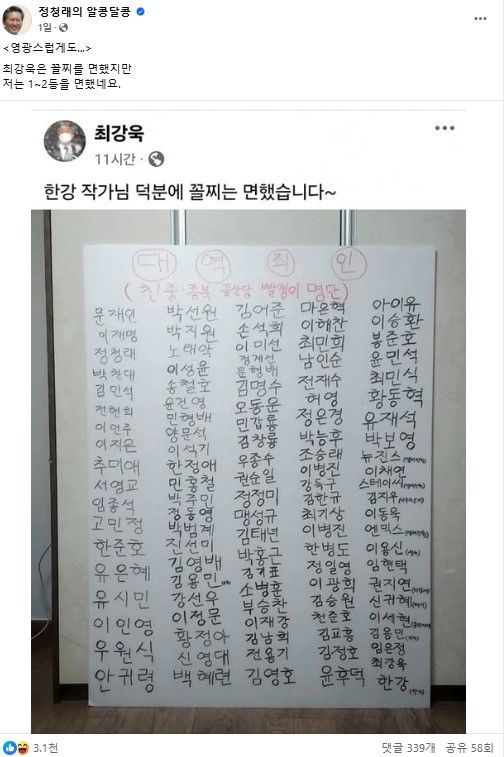 정청래의 알콩달콩
1일 ·
<영광스럽게도...>
최강욱은 꼴찌를 면했지만
저는 1~2등을 면했네요.
최강욱
11시간 ·
한강 작가님 덕분에 꼴찌는 면했습니다~
대 역 죄 인
(친중·종북 공산당 빨갱이 명단)
문재인
이재명
정청래
박찬대
김민석
전현희
이언주
이지은
추미애
서영교
임종석
고민정
한준호
유은혜
유시민
이인영
우원식
안귀령
박선원
박지원
노태악
이성윤
송철호
윤건영
민형배
양문석
이석기
한정애
민홍철
박주민
정동영
박범계
진선미
김영배
김용민
강선우
이정문
황정아
신영대
백혜련
김어준
손석희
이미선
정계선
문형배
김명수
오동운
민갑룡
김창룡
우종수
권순일
정정미
맹성규
김태년
박홍근
소병훈
부승찬
이재강
김남희
전용기
김영호
마은혁
이해찬
최민희
남인순
전재수
허영
정은경
박능후
조승래
이병진
강득구
김한규
최기상
이병진
한병도
정일영
이광희
김승원
천준호
김교흥
김정호
윤후덕
아이유
이승환
봉준호
윤민석
최민식
황동혁
유재석
박보영
뉴진스
이채연
스테이씨
김지우
이동욱
엔믹스
이용신
임현택
권지연
신귀혜
이세현
김용민
임은정
최강욱
한강
3.1천
댓글 339개 공유 58회